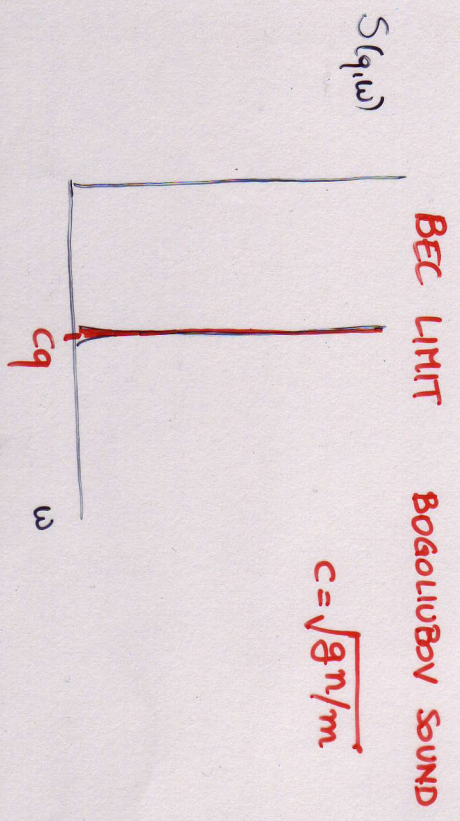 BEC LIMIT BOGOLIUBOV SOUND
S(q,ω)
c=√gn/m
cq
ω